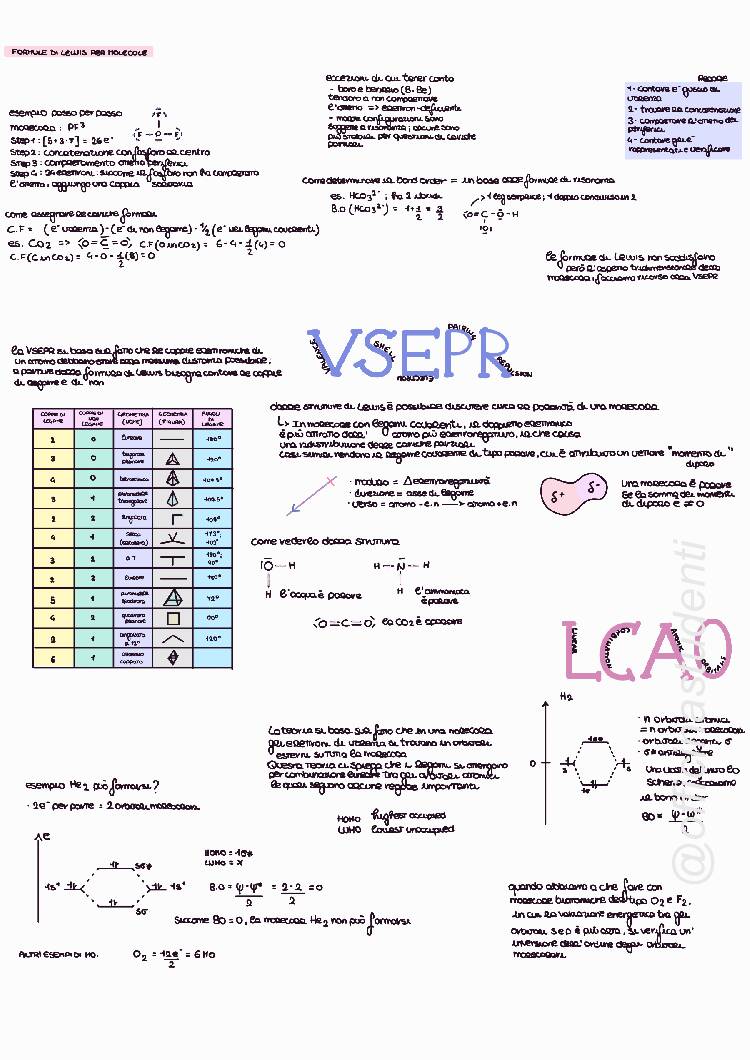 FORMULE DI LEWIS PER MOLECOLE
esempio passo per passo
molecola: PF³
Step 1: [5+3·7] = 26e⁻
Step 2: concatenazione con fosforo al centro
Step 3: completamento ottetto periferici
Step 4: 24 elettroni: siccome il fosforo non ha completato
l'ottetto, aggiungo una coppia solitaria
F
F – P – F
eccezioni di cui tener conto
- boro e berillio (B, Be)
tendono a non completare
l'ottetto => elettron-deficiente
- molte configurazioni sono
soggette a risonanza; alcune sono
più stabili per questioni di cariche
parziali
REGOLE
1- contare e⁻ guscio di
valenza
2- trovare la concatenazione
3- completare l'ottetto dei
periferici
4- contare gli e⁻
rappresentati e verificare
come assegnare le cariche formali
C.F = (e⁻ valenza) - (e⁻ di non legame) - 1/2 (e⁻ nei legami covalenti)
es. CO2 => O=C=O, C.F (O in CO2) = 6-4-1/2(4) = 0
C.F (C in CO2) = 4-0-1/2(8) = 0
Come determinare il bond order = in base alle formule di risonanza
es. HCO3²⁻; ha 2 ibridi
B.O (HCO3²⁻) = 1+1/2 = 3/2
→ 1 leg semplice; 1 doppio condiviso in 2
O=C-O-H
|O|
le formule di Lewis non soddisfano
però l'aspetto tridimensionale della
molecola; facciamo ricorso alla VSEPR
la VSEPR si basa sul fatto che le coppie elettroniche di
un atomo debbano stare alla massima distanza possibile;
a partire dalla formula di Lewis bisogna contare le coppie
di legame e di non
VSEPR
VALENCE
SHELL
ELECTRON
PAIRING
REPULSION
COPPIE DI LEGAME COPPIE DI NON LEGAME GEOMETRIA (NOME) GEOMETRIA (FIGURA) ANGOLI DI LEGAME
2 0 lineare 180°
3 0 trigonale planare 120°
4 0 tetraedrica 109.5°
3 1 piramidale triangolare 107.5°
2 2 angolata 104°
4 1
3 2 a T
2 3 lineare 180°
5 1 72°
4 2 quadrato planare 90°
2 1 120°
6 1
dalle strutture di Lewis è possibile discutere circa la polarità di una molecola
↳ In molecole con legami covalenti, il doppietto elettronico
è più attratto dall' atomo più elettronegativo, il che causa
una ridistribuzione delle cariche parziali
Cose simili rendono il legame covalente di tipo polare, cui è attribuito un vettore "momento di
dipolo"
· modulo = Δ elettronegatività
· direzione = asse di legame
· verso = atomo - e.n → atomo + e.n
δ+ δ-
Una molecola è polare
se la somma dei momenti
di dipolo è ≠ 0
come vederlo dalla struttura
O – H
H
l'acqua è polare
H – N – H
H
l'ammoniaca
è polare
O=C=O, la CO2 è apolare
LCAO
LINEAR
COMBINATION
ATOMIC
ORBITALS
La teoria si basa sul fatto che in una molecola
gli elettroni di valenza si trovano in orbitali
estesi su tutta la molecola
Questa teoria ci spiega che i legami si ottengono
per combinazione lineare tra gli orbitali atomici
le quali seguono alcune regole importanti
HOMO highest occupied
LUMO lowest unoccupied
H2
0
· n orbitali atomici
= n orbitali molecolari
BO = ψ-ψ*/2
esempio He2 può formarsi?
· 2e⁻ per parte = 2 orbitali molecolari
E
1s² 1s²
Sσ*
Sσ
HOMO = 1σ*
LUMO = X
B.O = ψ-ψ*/2 = 2-2/2 = 0
Siccome BO = 0, la molecola He2 non può formarsi
ALTRI ESEMPI DI MO: O2 = 12e⁻/2 = 6 MO
quando abbiamo a che fare con
molecole biatomiche del tipo O2 e F2,
in cui la variazione energetica tra gli
orbitali s e p è più alta, si verifica un'
inversione dell'ordine degli orbitali
molecolari.